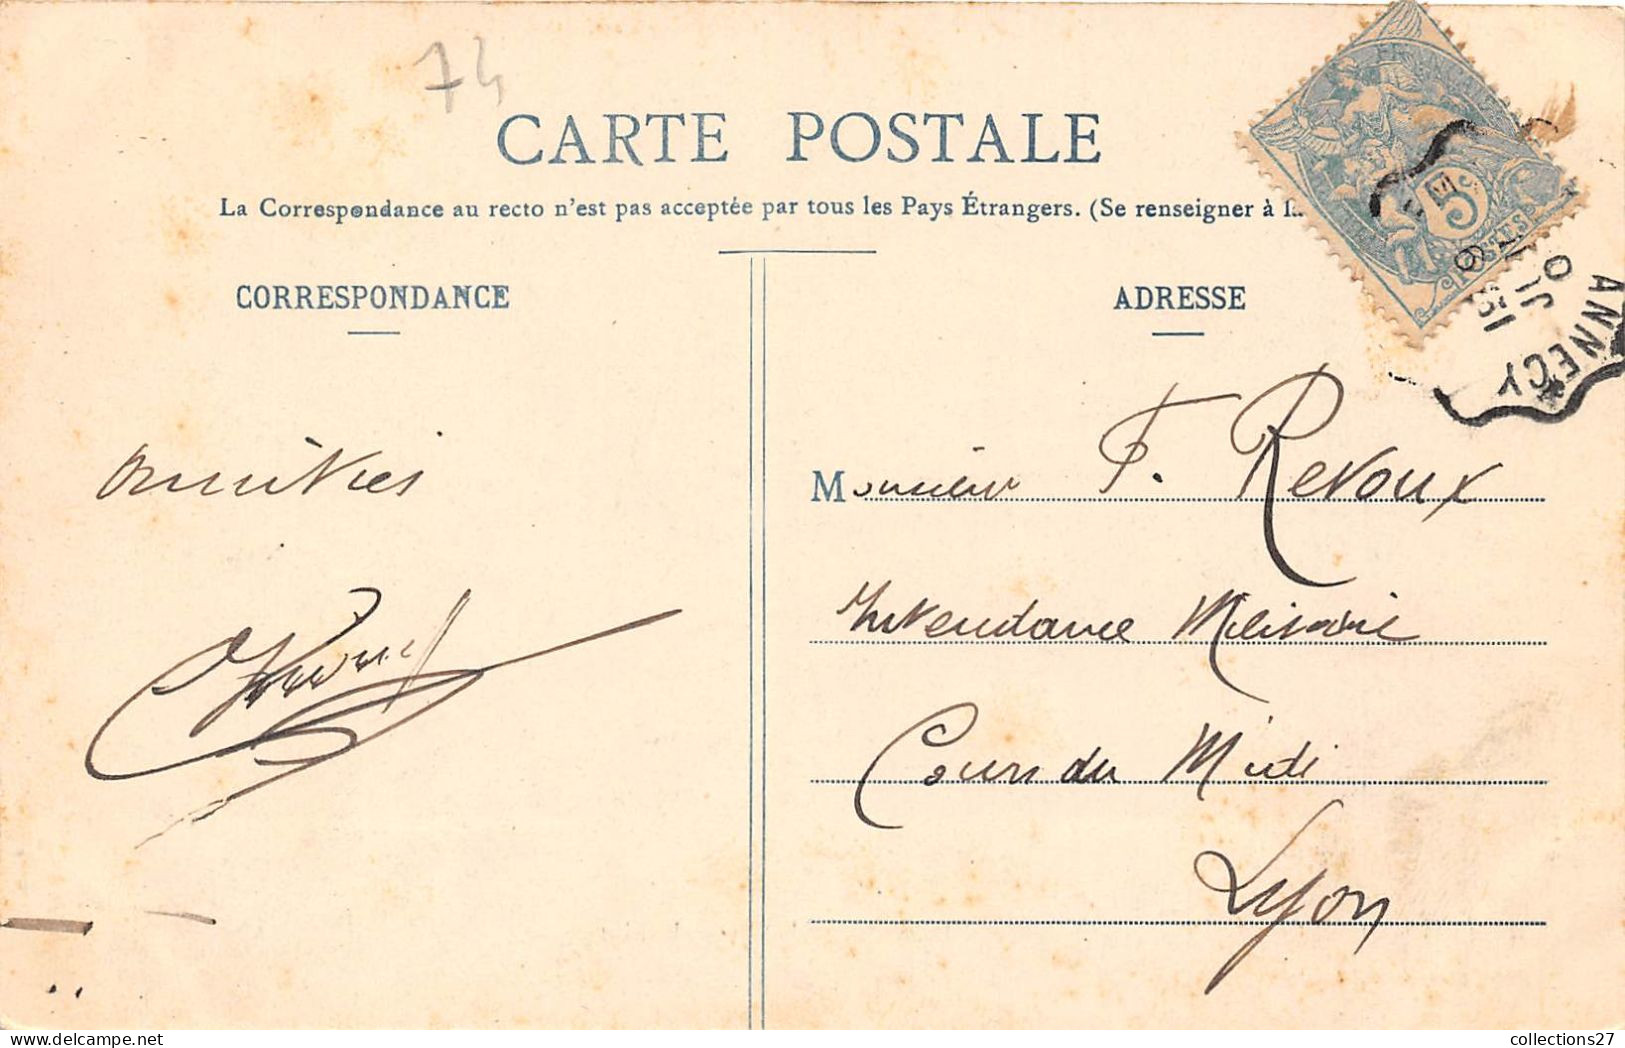 74
CARTE POSTALE
La Correspondance au recto n'est pas acceptée par tous les Pays Étrangers. (Se renseigner à la
CORRESPONDANCE
ADRESSE
5
POSTES
ANNECY
amitiés
Monsieur F. Revoux
Intendance Militaire
Cours du Midi
Lyon
collections27